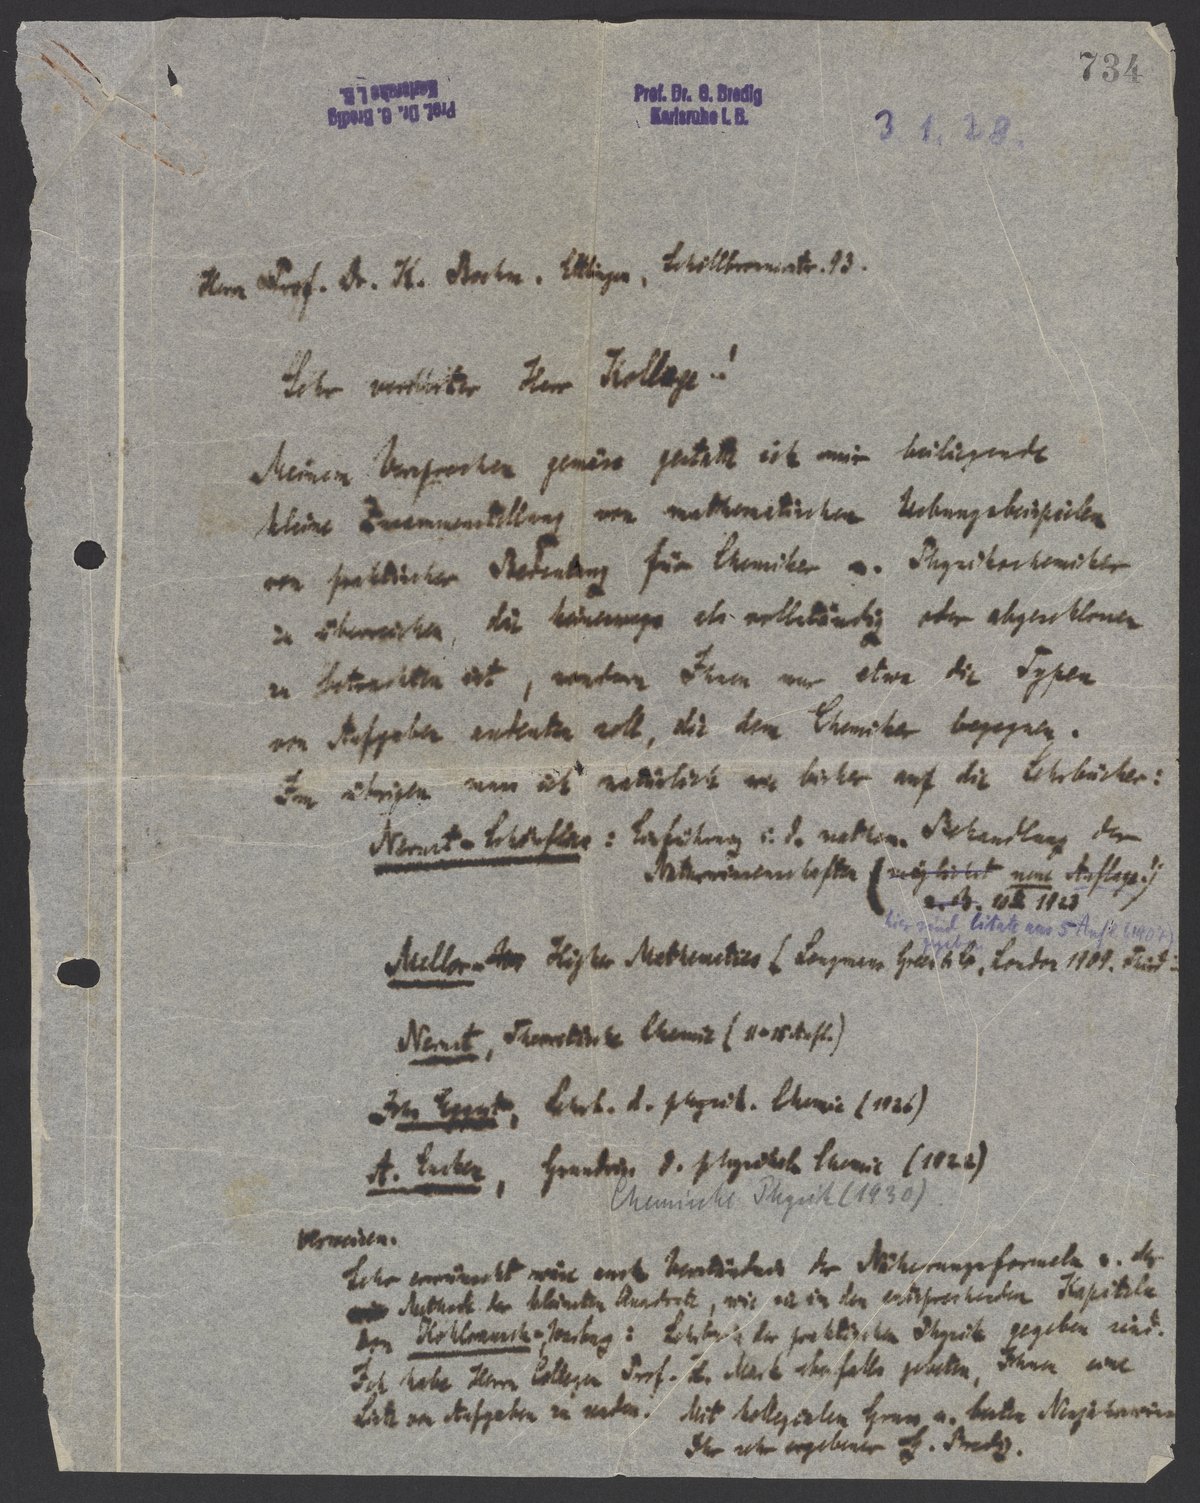 734
Prof. Dr. G. Bredig
Karlsruhe i. B.
Prof. Dr. G. Bredig
Karlsruhe i. B.
3.1.28.
Herrn Prof. Dr. K. Boehm. Ettlingen, Schöllbronnerstr. 93.
Sehr verehrter Herr Kollege!
Meinem Versprechen gemäss gestatte ich mir beiliegende
kleine Zusammenstellung von mathematischen Uebungsbeispielen
von praktischer Bedeutung für Chemiker u. Physikochemiker
zu überreichen, die keineswegs als vollständig oder abgeschlossen
zu betrachten ist, sondern Ihnen nur etwa die Typen
von Aufgaben andeuten soll, die dem Chemiker begegnen.
Im übrigen muss ich natürlich wie bisher auf die Lehrbücher:
Nernst-Schönflies: Einführung i. d. mathem. Behandlung der
Naturwissenschaften (möglichst neue Auflage!)
1923
hier sind Citate aus 5 Aufl. (1907)
gegeben
Mellor Higher Mathematics (Longmans Green & Co, London 1909.
Nernst, Theoretische Chemie (11-15 Aufl.)
John Eggert, Lehrb. d. physik. Chemie (1926)
A. Eucken, Grundriss d. physikal. Chemie (1922)
Chemische Physik (1930)
verweisen.
Sehr erwünscht wäre auch Verständnis der Näherungsformeln u. der
Methode der kleinsten Quadrate, wie sie in den entsprechenden Kapiteln
von Kohlrausch: Lehrbuch der praktischen Physik gegeben sind.
Ich habe Herrn Collegen Prof. H. Mark ebenfalls gebeten, Ihnen eine
Liste von Aufgaben zu senden. Mit kollegialem Gruss u. besten Neujahrswün
Ihr sehr ergebener G. Bredig.